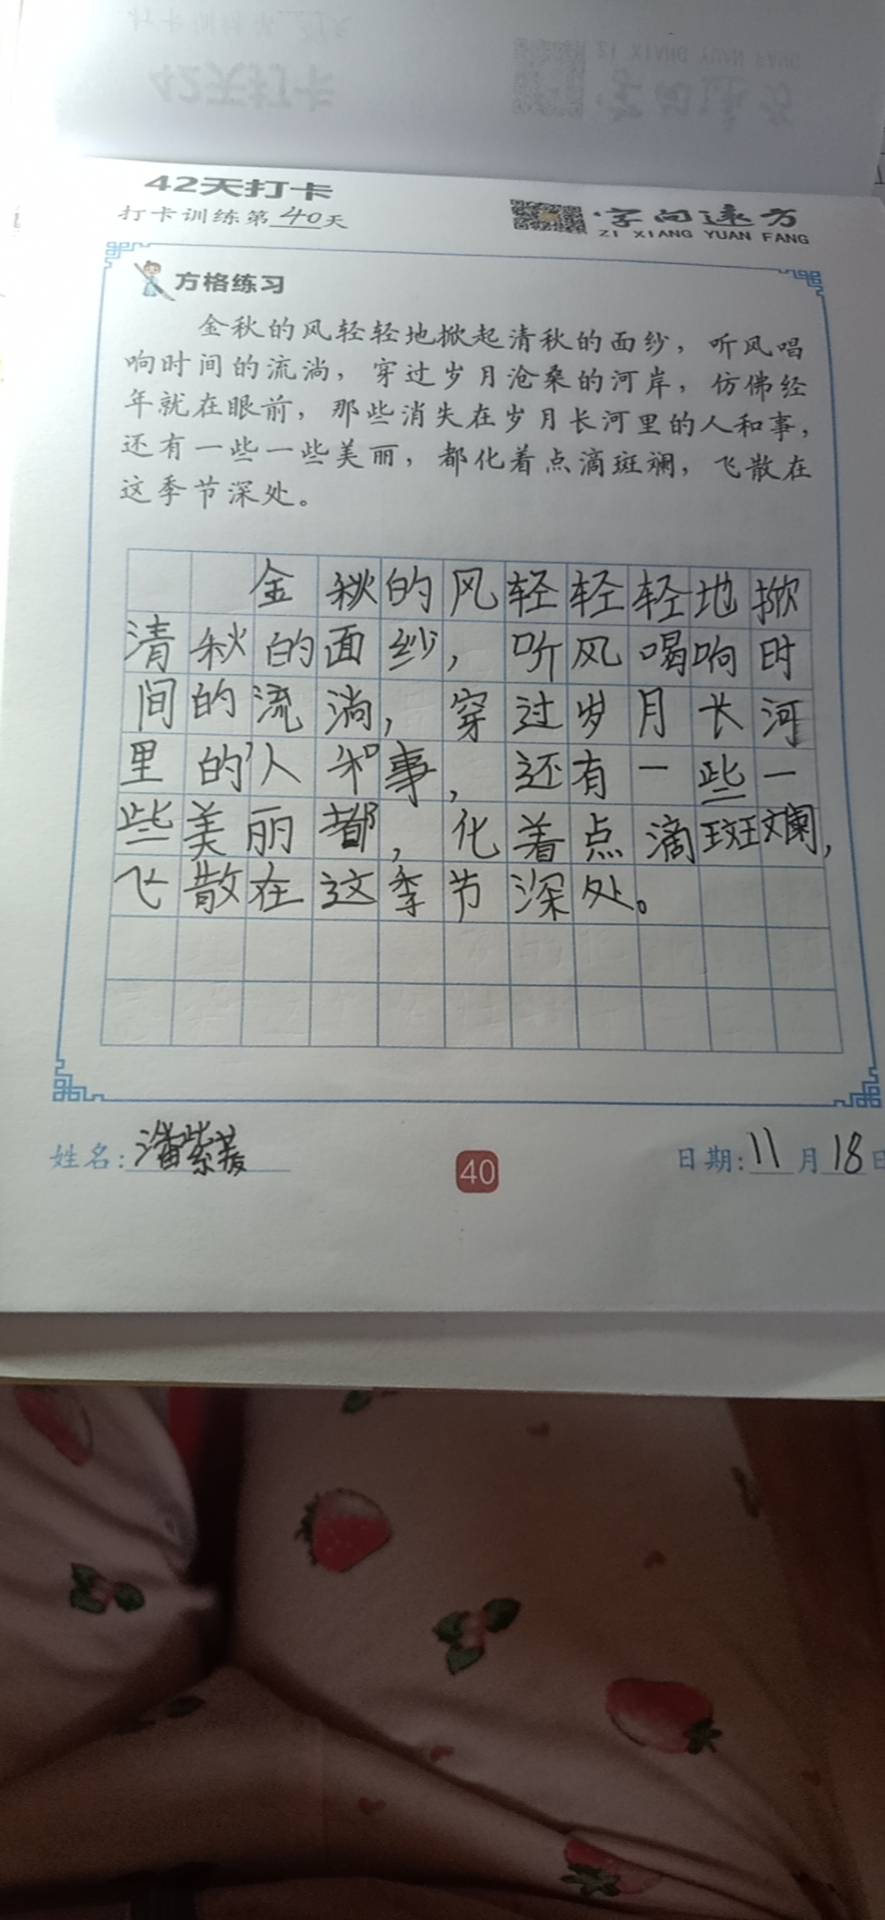 42天打卡
打卡训练第40天
字向远方
ZI XIANG YUAN FANG
方格练习
金秋的风轻轻地掀起清秋的面纱，听风唱
响时间的流淌，穿过岁月沧桑的河岸，仿佛经
年就在眼前，那些消失在岁月长河里的人和事，
还有一些一些美丽，都化着点滴斑斓，飞散在
这季节深处。
金秋的风轻轻轻地掀
清秋的面纱，听风喝响时
间的流淌，穿过岁月长河
里的人和事，还有一些一
些美丽都，化着点滴斑斓，
飞散在这季节深处。
姓名：潘紫菱
40
日期：11月18日